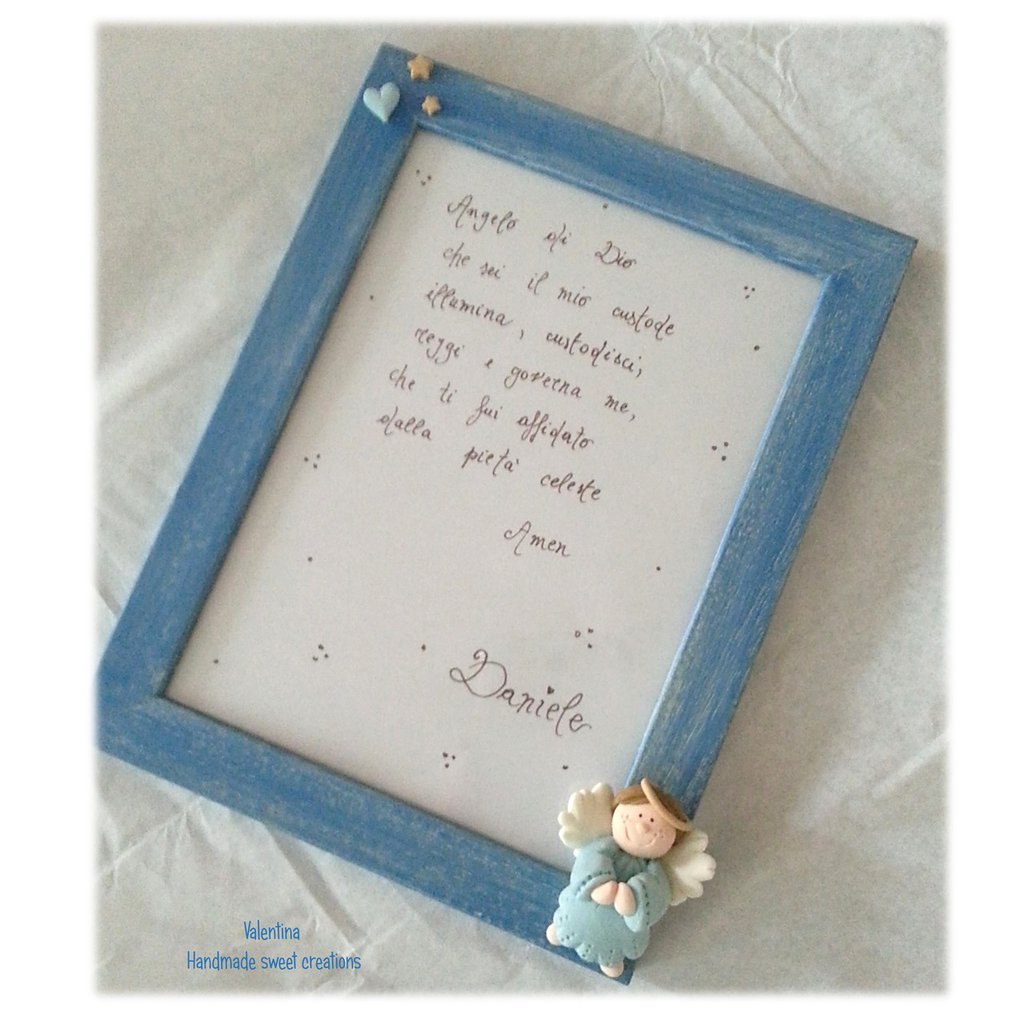 Angelo di Dio
che sei il mio custode
illumina, custodisci,
reggi e governa me,
che ti fui affidato
dalla pietà celeste
Amen
Daniele
Valentina
Handmade sweet creations